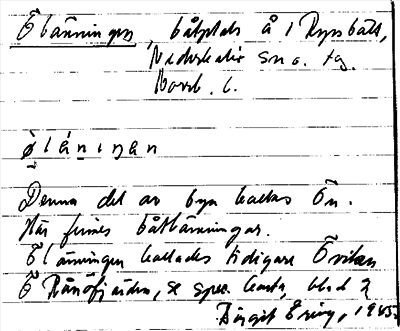 Ölänningen, båtplats å i Rynsbält,
Nederkalix sn o. tg.
Norrb. l.
ø̣lániŋan
Denna del av byn kallas Ön.
Här finnes båtlänningar.
Ölänningen kallades tidigare Öviken
Ö Rånöfjärden, se spec. karta, blad 2
Birgit Ering, 1945.